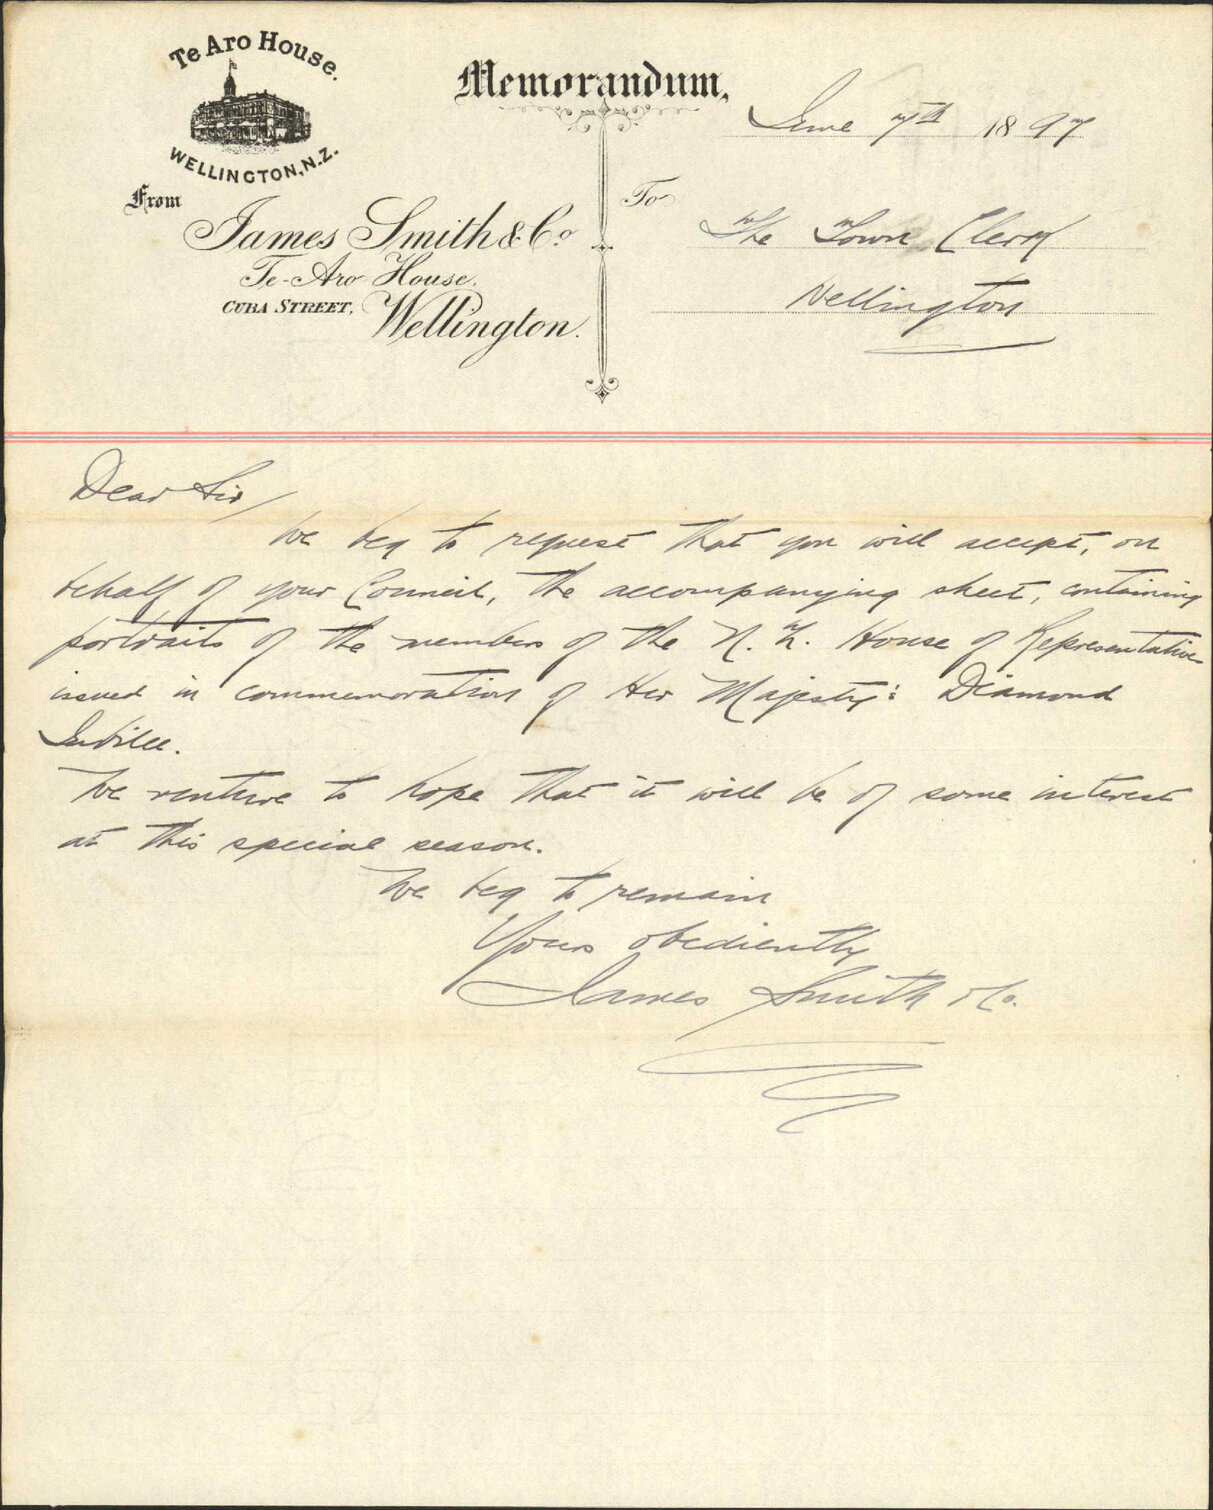 Te Aro House.
WELLINGTON, N.Z.
Memorandum,
June 7th 1897
From
James Smith & Co
Te-Aro House,
CUBA STREET, Wellington.
To
The Town Clerk
Wellington
Dear Sir/
We beg to request that you will accept, on
behalf of your Council, the accompanying sheet, containing
portraits of the members of the N.Z. House of Representatives
issued in commemoration of Her Majesty's Diamond
Jubilee.
We venture to hope that it will be of some interest
at this special season.
We beg to remain
Yours obediently
James Smith & Co.